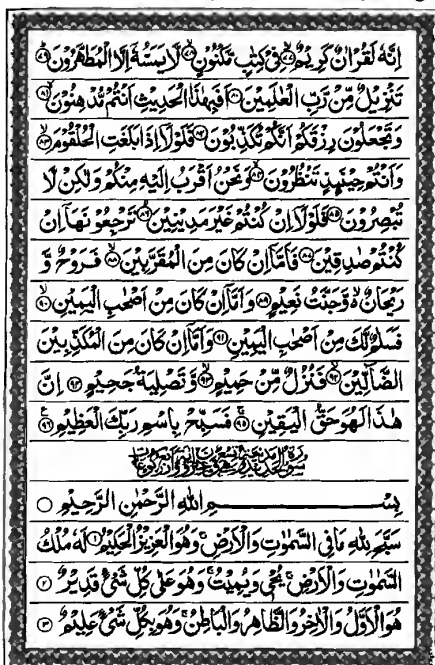 اِنَّهٗ لَقُرْاٰنٌ كَرِیْمٌ ﴿۷۷﴾ فِیْ كِتٰبٍ مَّكْنُوْنٍ ﴿۷۸﴾ لَّا یَمَسُّهٗۤ اِلَّا الْمُطَهَّرُوْنَ ﴿۷۹﴾
تَنْزِیْلٌ مِّنْ رَّبِّ الْعٰلَمِیْنَ ﴿۸۰﴾ اَفَبِهٰذَا الْحَدِیْثِ اَنْتُمْ مُّدْهِنُوْنَ ﴿۸۱﴾
وَ تَجْعَلُوْنَ رِزْقَكُمْ اَنَّكُمْ تُكَذِّبُوْنَ ﴿۸۲﴾ فَلَوْلَاۤ اِذَا بَلَغَتِ الْحُلْقُوْمَ ﴿۸۳﴾
وَ اَنْتُمْ حِیْنَىِٕذٍ تَنْظُرُوْنَ ﴿۸۴﴾ وَ نَحْنُ اَقْرَبُ اِلَیْهِ مِنْكُمْ وَ لٰكِنْ لَّا
تُبْصِرُوْنَ ﴿۸۵﴾ فَلَوْلَاۤ اِنْ كُنْتُمْ غَیْرَ مَدِیْنِیْنَ ﴿۸۶﴾ تَرْجِعُوْنَهَاۤ اِنْ
كُنْتُمْ صٰدِقِیْنَ ﴿۸۷﴾ فَاَمَّاۤ اِنْ كَانَ مِنَ الْمُقَرَّبِیْنَ ﴿۸۸﴾ فَرَوْحٌ وَّ
رَیْحَانٌ ۙ۬ وَّ جَنَّتُ نَعِیْمٍ ﴿۸۹﴾ وَ اَمَّاۤ اِنْ كَانَ مِنْ اَصْحٰبِ الْیَمِیْنِ ﴿۹۰﴾
فَسَلٰمٌ لَّكَ مِنْ اَصْحٰبِ الْیَمِیْنِ ﴿۹۱﴾ وَ اَمَّاۤ اِنْ كَانَ مِنَ الْمُكَذِّبِیْنَ
الضَّآلِّیْنَ ﴿۹۲﴾ فَنُزُلٌ مِّنْ حَمِیْمٍ ﴿۹۳﴾ وَّ تَصْلِیَةُ جَحِیْمٍ ﴿۹۴﴾ اِنَّ
هٰذَا لَهُوَ حَقُّ الْیَقِیْنِ ﴿۹۵﴾ فَسَبِّحْ بِاسْمِ رَبِّكَ الْعَظِیْمِ ﴿۹۶﴾
بِسْمِ اللّٰهِ الرَّحْمٰنِ الرَّحِیْمِ
سَبَّحَ لِلّٰهِ مَا فِی السَّمٰوٰتِ وَ الْاَرْضِ ۚ وَ هُوَ الْعَزِیْزُ الْحَكِیْمُ ﴿۱﴾ لَهٗ مُلْكُ
السَّمٰوٰتِ وَ الْاَرْضِ ۚ یُحْیٖ وَ یُمِیْتُ ۚ وَ هُوَ عَلٰى كُلِّ شَیْءٍ قَدِیْرٌ ﴿۲﴾
هُوَ الْاَوَّلُ وَ الْاٰخِرُ وَ الظَّاهِرُ وَ الْبَاطِنُ ۚ وَ هُوَ بِكُلِّ شَیْءٍ عَلِیْمٌ ﴿۳﴾